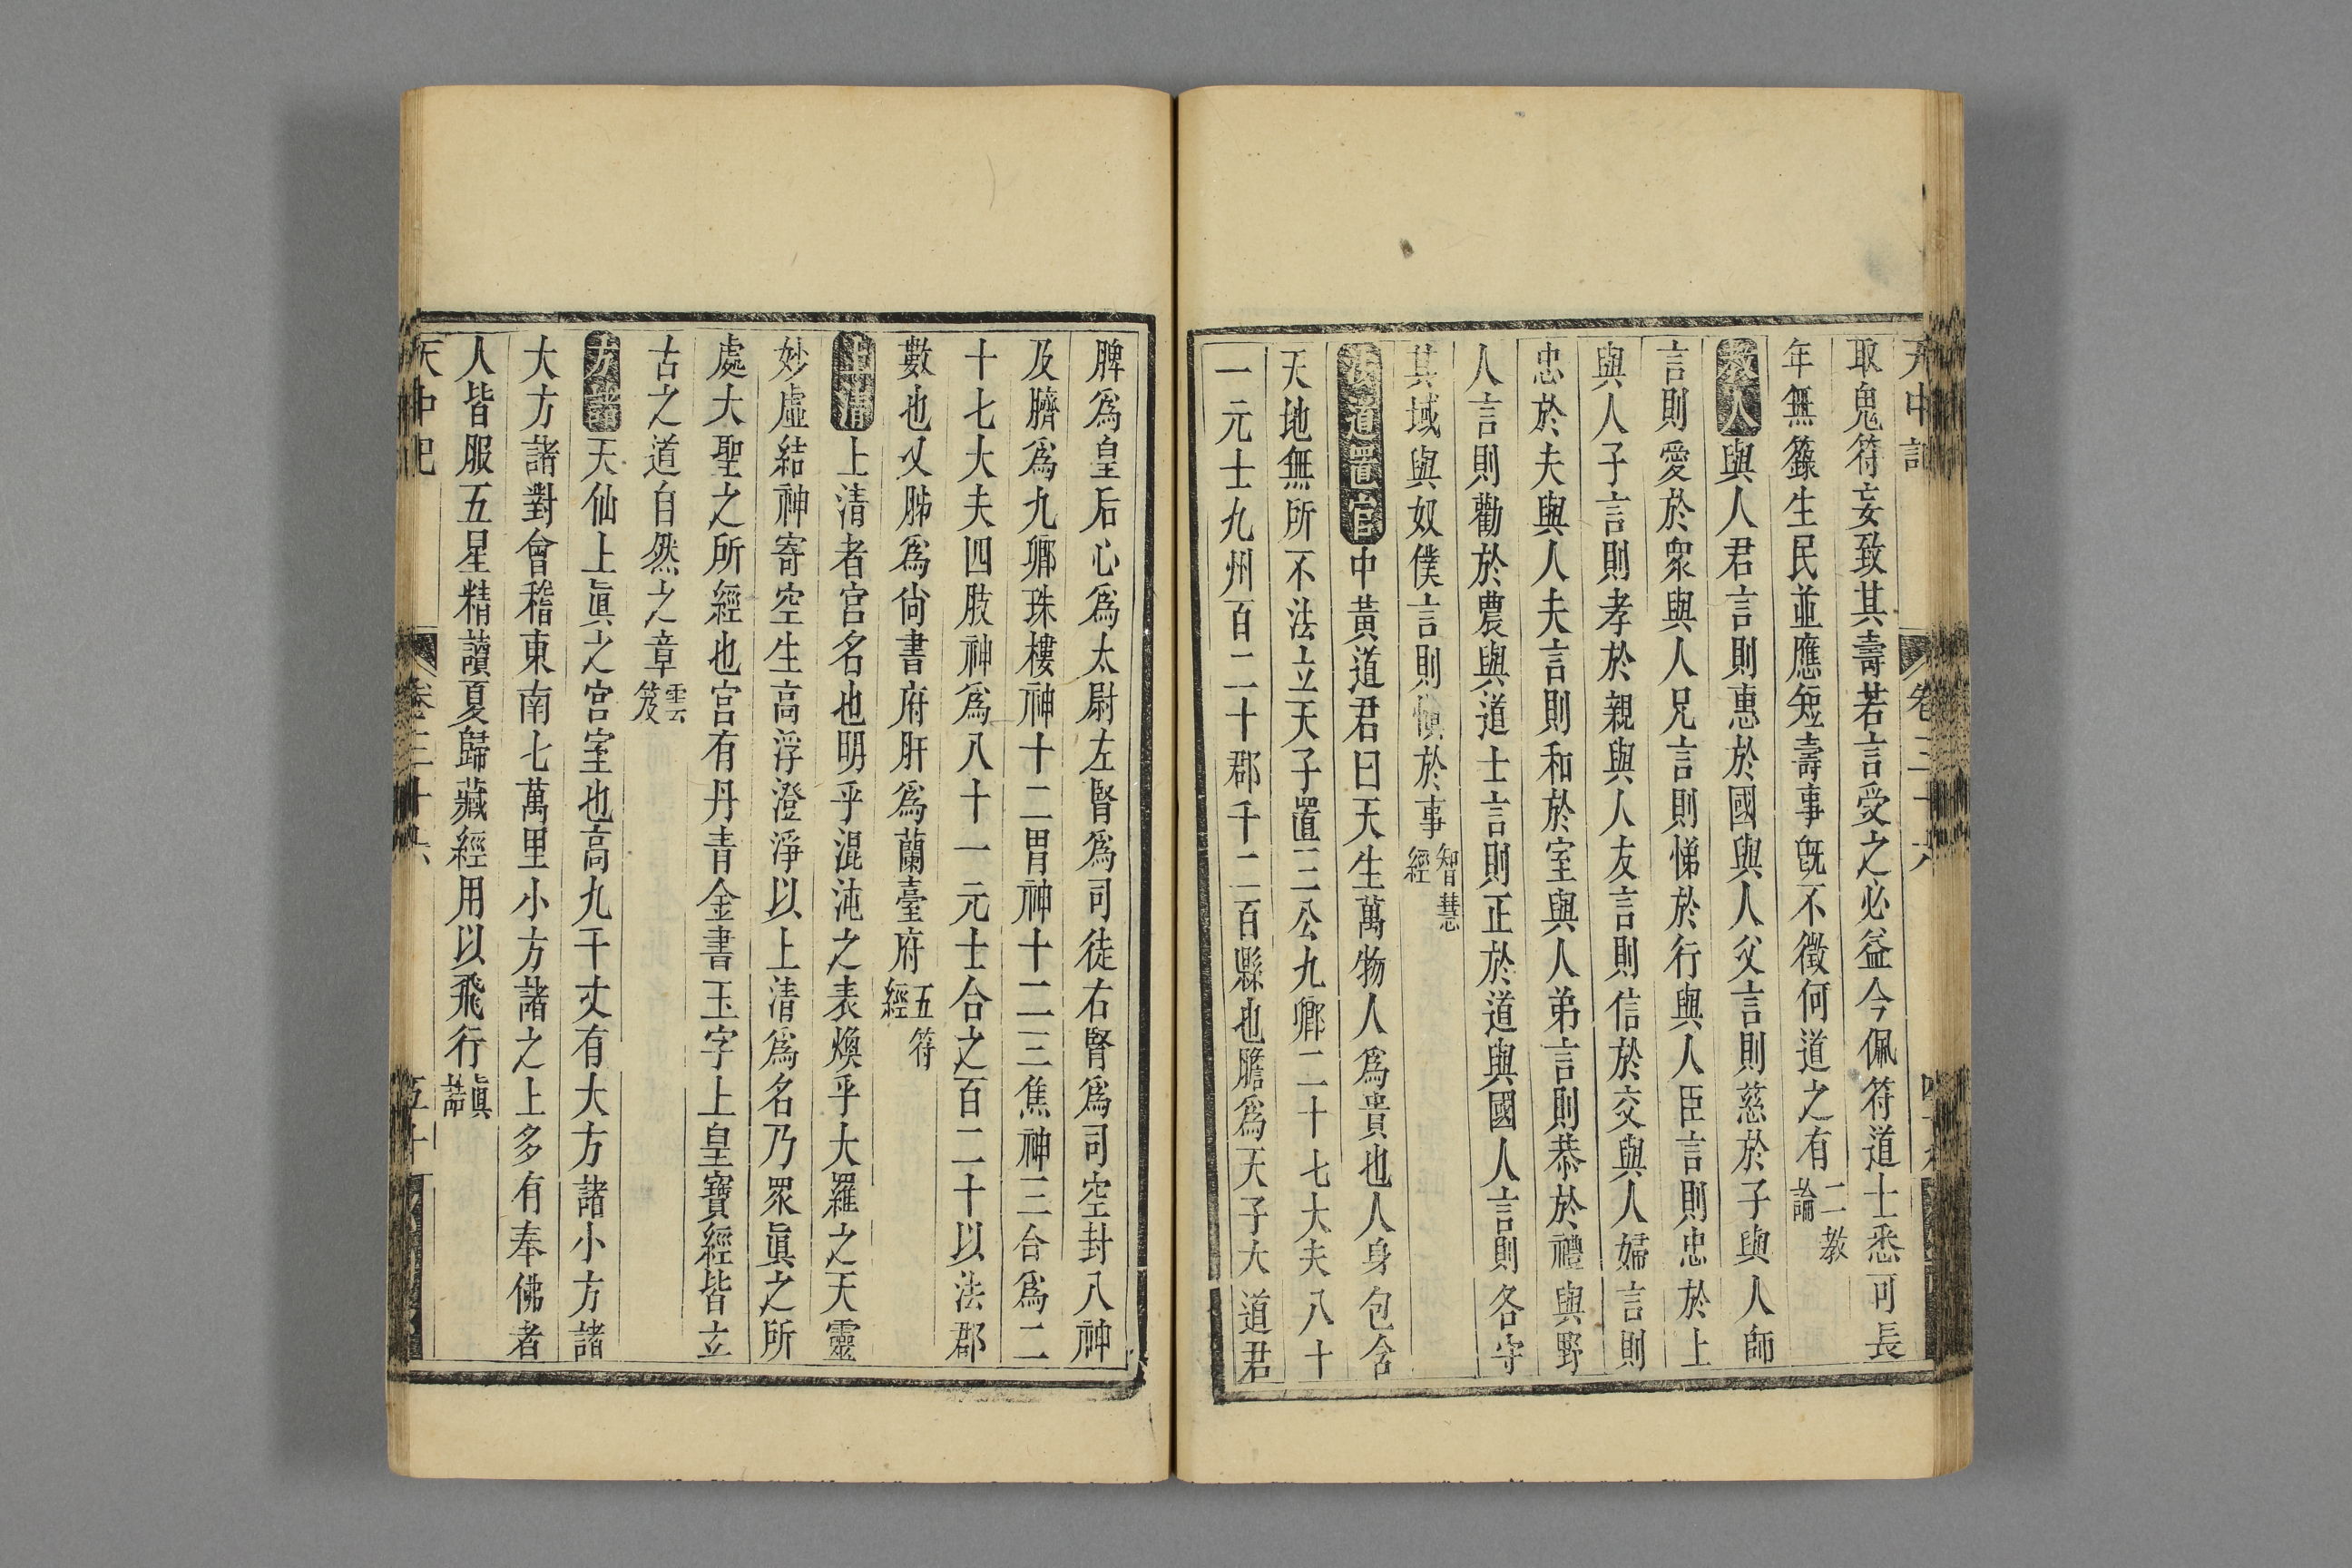 天中記 卷三十六
取鬼符妄致其壽若言受之必益今佩符道士悉可長
年無籙生民並應短壽事旣不徵何道之有二教論
教人與人君言則惠於國與人父言則慈於子與人師
言則愛於衆與人兄言則悌於行與人臣言則忠於上
與人子言則孝於親與人友言則信於交與人婦言則
忠於夫與人夫言則和於室與人弟言則恭於禮與野
人言則勸於農與道士言則正於道與國人言則各守
其域與奴僕言則愼於事智慧經
道置官中黃道君曰天生萬物人爲貴也人身包含
天地無所不法立天子置三公九卿二十七大夫八十
一元士九州百二十郡千二百縣也膽爲天子大道君
脾爲皇后心爲太尉左腎爲司徒右腎爲司空封八神
及臍爲九卿珠樓神十二胃神十二三焦神三合爲二
十七大夫四肢神爲八十一元士合之百二十以法郡
數也又肺爲尙書府肝爲蘭臺府五符經
上清上清者宮名也明乎混沌之表煥乎大羅之天靈
妙虛結神寄空生高浮澄淨以上清爲名乃眾眞之所
處大聖之所經也宮有丹青金書玉字上皇寶經皆立
古之道自然之章雲笈
方諸天仙上眞之宮室也高九千丈有大方諸小方諸
大方諸對會稽東南七萬里小方諸之上多有奉佛者
人皆服五星精讀夏歸藏經用以飛行眞誥
天中記 卷三十六 五十